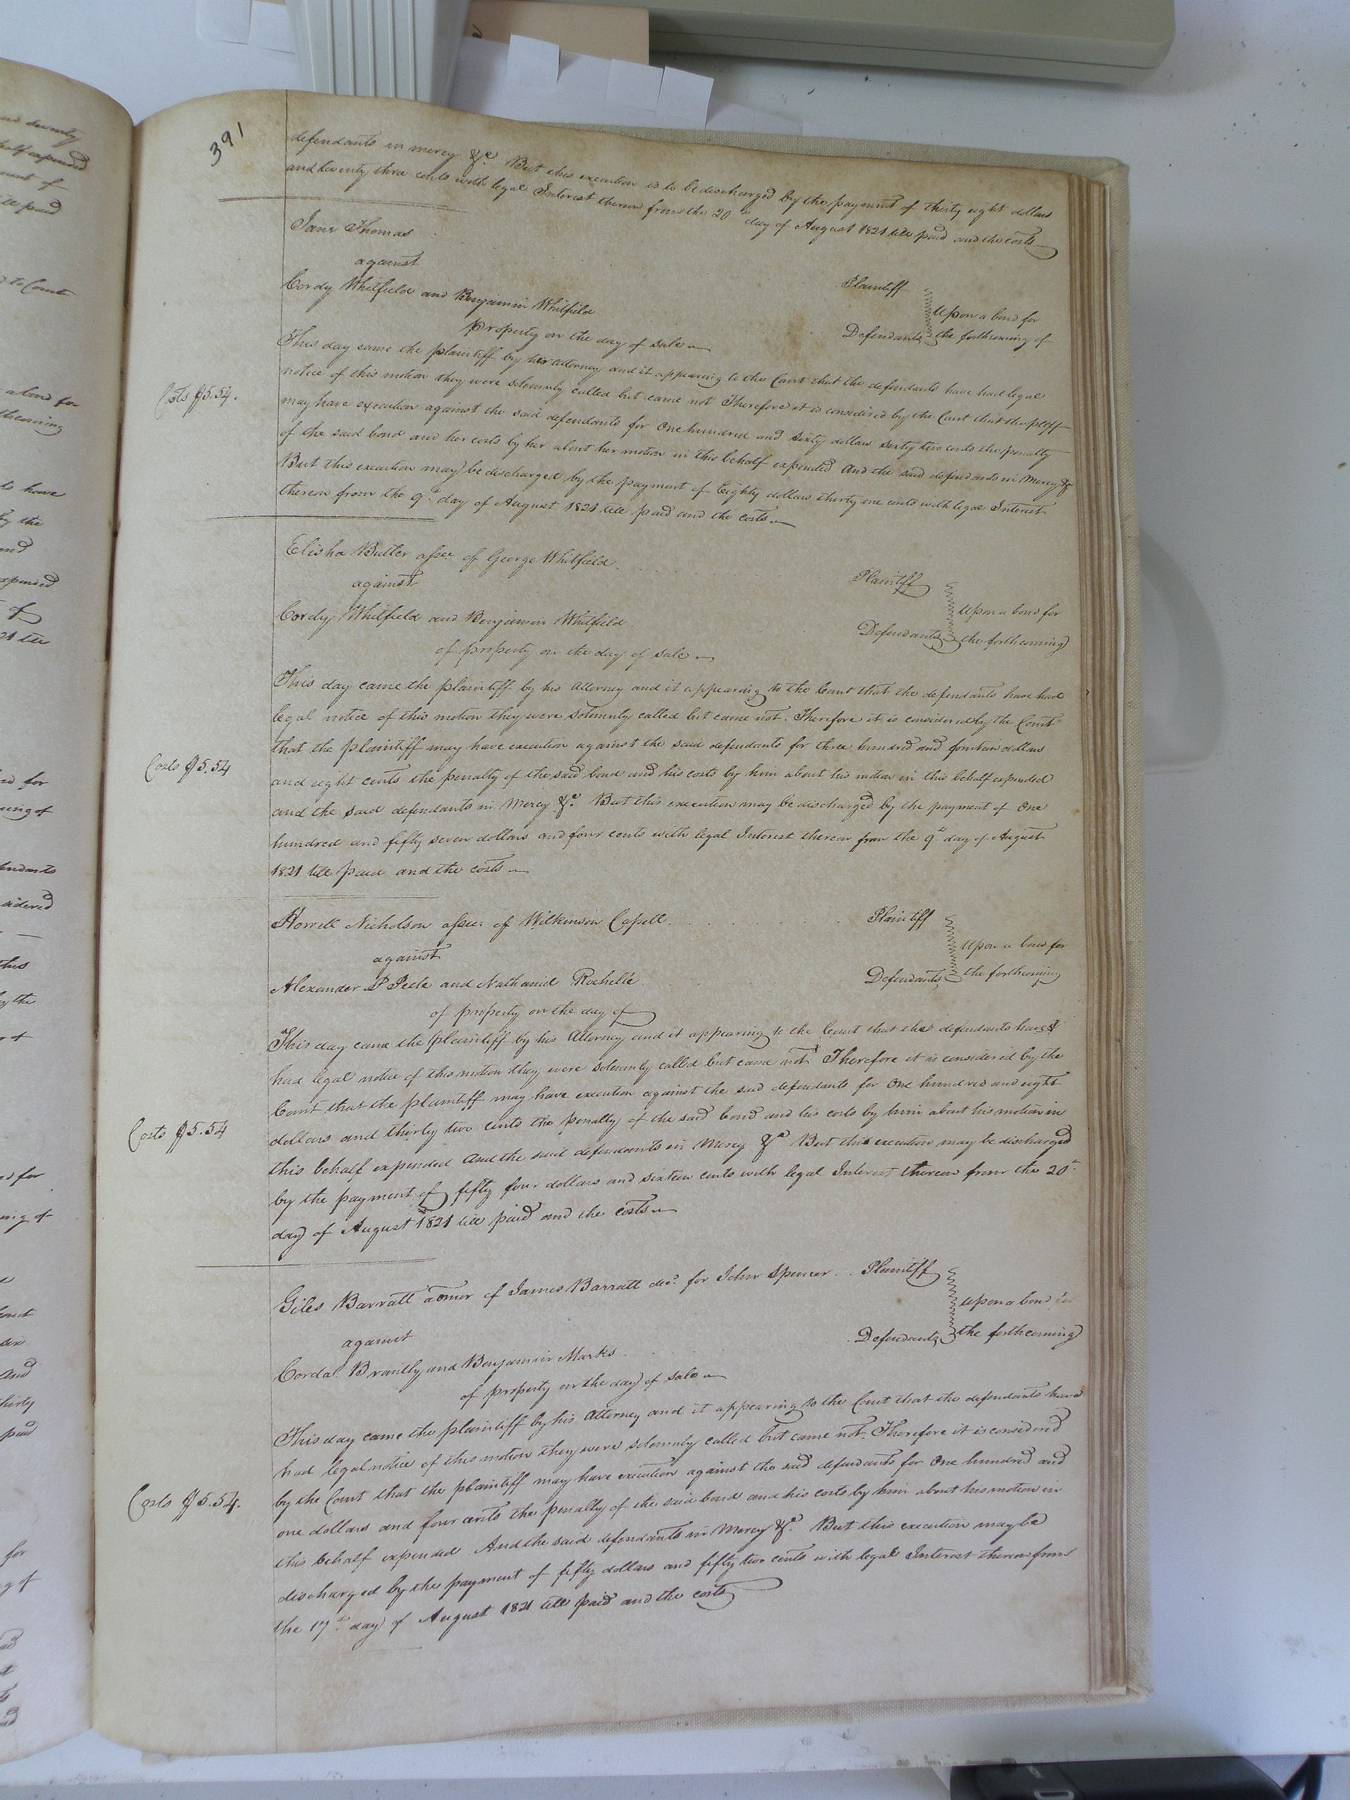 391
defendants in mercy &c. But this execution is to be discharged by the payment of thirty eight dollars
and twenty three cents with legal Interest thereon from the 20th day of August 1821 till paid and the costs
Jane Thomas Plaintiff
against Upon a bond for
Cordy Whitfield and Benjamin Whitfield Defendants the forthcoming of
Property on the day of sale
This day came the plaintiff by her attorney and it appearing to the Court that the defendants have had legal
Costs $5.54. notice of this motion they were solemnly called but came not Therefore it is considered by the Court that the pltff
may have execution against the said defendants for One hundred and sixty dollars sixty two cents the penalty
of the said bond and her costs by her about her motion in this behalf expended And the said defendants in Mercy &
But this execution may be discharged by the payment of Eighty dollars thirty one cents with legal Interest
thereon from the 9th day of August 1821 till paid and the costs
Elisha Butler assee of George Whitfield Plaintiff
against Upon a bond for
Cordy Whitfield and Benjamin Whitfield Defendants the forthcoming
of property on the day of sale
This day came the plaintiff by his Attorney and it appearing to the Court that the defendants have had
legal notice of this motion they were solemnly called but came not. Therefore it is considered by the Court
that the plaintiff may have execution against the said defendants for three hundred and fourteen dollars
Costs $5.54 and eight cents the penalty of the said bond and his costs by him about his motion in this behalf expended
and the said defendants in Mercy &c. But this execution may be discharged by the payment of One
hundred and fifty seven dollars and four cents with legal Interest thereon from the 9th day of August
1821 till paid and the costs
Nicholson assee. of Wilkinson Capell Plaintiff
against Upon a bond for
Alexander P Peete and Nathaniel Rochelle Defendants the forthcoming
of property on the day of
This day came the plaintiff by his Attorney and it appearing to the Court that the defendants have
had legal notice of this motion they were solemnly called but came not Therefore it is considered by the
Court that the plaintiff may have execution against the said defendants for One hundred and eight
Costs $5.54 dollars and thirty two cents the penalty of the said bond and his costs by him about his motion in
this behalf expended And the said defendants in Mercy &c But this execution may be discharged
by the payment of fifty four dollars and sixteen cents with legal Interest thereon from the 20th
day of August 1821 till paid and the costs
Giles Barratt admor of James Barratt decd. for John Spencer Plaintiff
against Upon a bond for
Cordal Brantly and Benjamin Marks Defendants the forthcoming
of property on the day of sale
This day came the plaintiff by his Attorney and it appearing to the Court that the defendants have
had legal notice of this motion they were solemnly called but came not. Therefore it is considered
by the Court that the plaintiff may have execution against the said defendants for One hundred and
Costs $5.54. one dollars and four cents the penalty of the said bond and his costs by him about his motion in
this behalf expended And the said defendants in Mercy &c. But this execution may be
discharged by the payment of fifty dollars and fifty two cents with legal Interest thereon from
the 17th day of August 1821 till paid and the costs